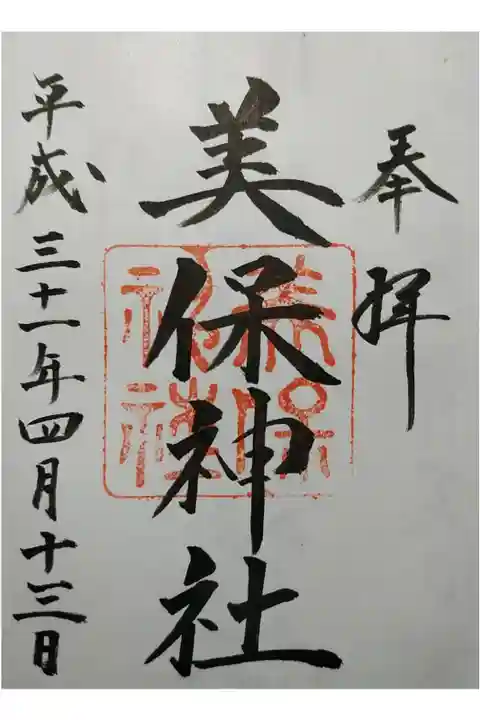 奉拝
美保神社
美保神社
平成三十一年四月十三日